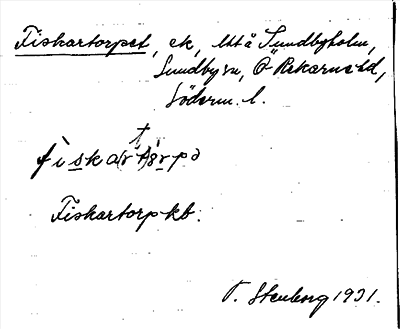 Fiskartorpet, ek, Utt å Sundbyholm,
Sundby sn, Ö Rekarne hd,
Söderm. l.
Fiskartorp kb.
T. Stenberg 1931.